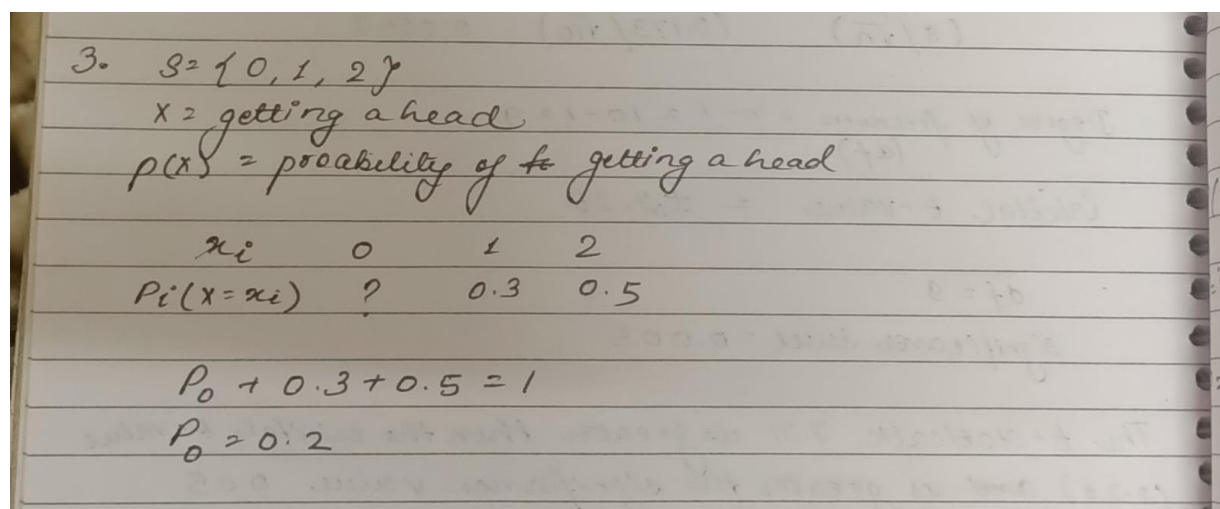 3. S = {0, 1, 2}
X = getting a head
p(x) = proabelity of getting a head
xi 0 1 2
Pi(X=xi) ? 0.3 0.5
P₀ + 0.3 + 0.5 = 1
P₀ = 0.2